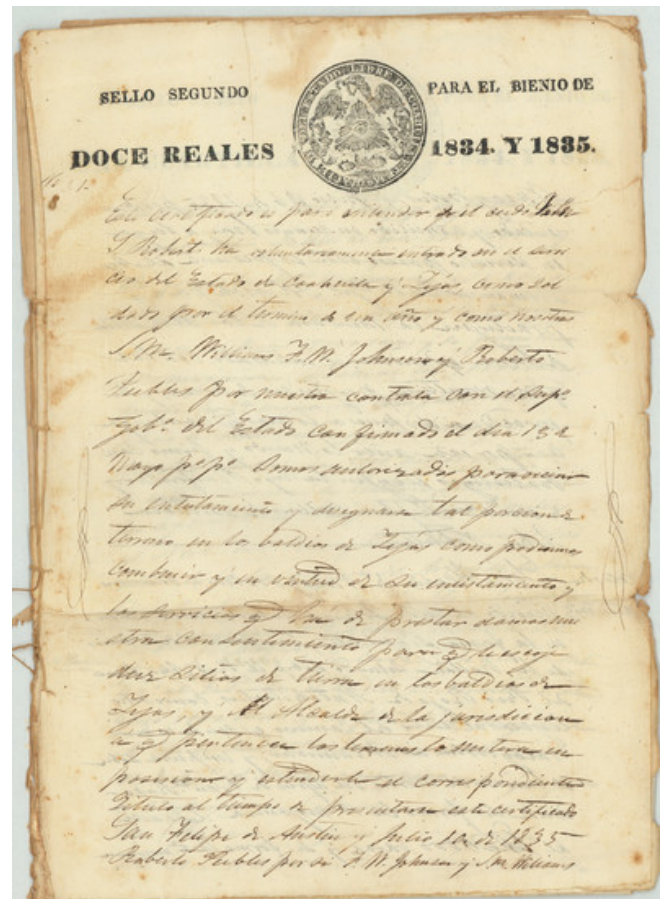 SELLO SEGUNDO
PARA EL BIENIO DE
DOCE REALES
1834. Y 1835.
Este Certificado es para entender que el
S Robert ha voluntariamente entrado en el servi
cio del Estado de Coahuila y Tejas como Sol
dado por el termino de un año y como nosotros
S. M. Williams F. W. Johnson y Roberto
Peebles por nuestra contrata con el Supo
Gobo del Estado confirmado el dia
Mayo po po Somos autorizados para
su enlistamiento y designarse tal porcion de
terreno en los baldios de Tejas como podiamos
combenir y en virtud de su enlistamiento y
los servicios q ha de prestar damos nue
stro consentimiento para q le escoje
diez Sitios de tierra en los baldios de
Tejas, y el Alcalde de la jurisdicion
a q pertenece los terrenos lo meterá en
posicion y estenderle el correspondiente
Titulo al tiempo de presentarse este certificado
San Felipe de Austin y Julio 10 de 1835
Roberto Peebles por si F. W. Johnson y S. M. Williams